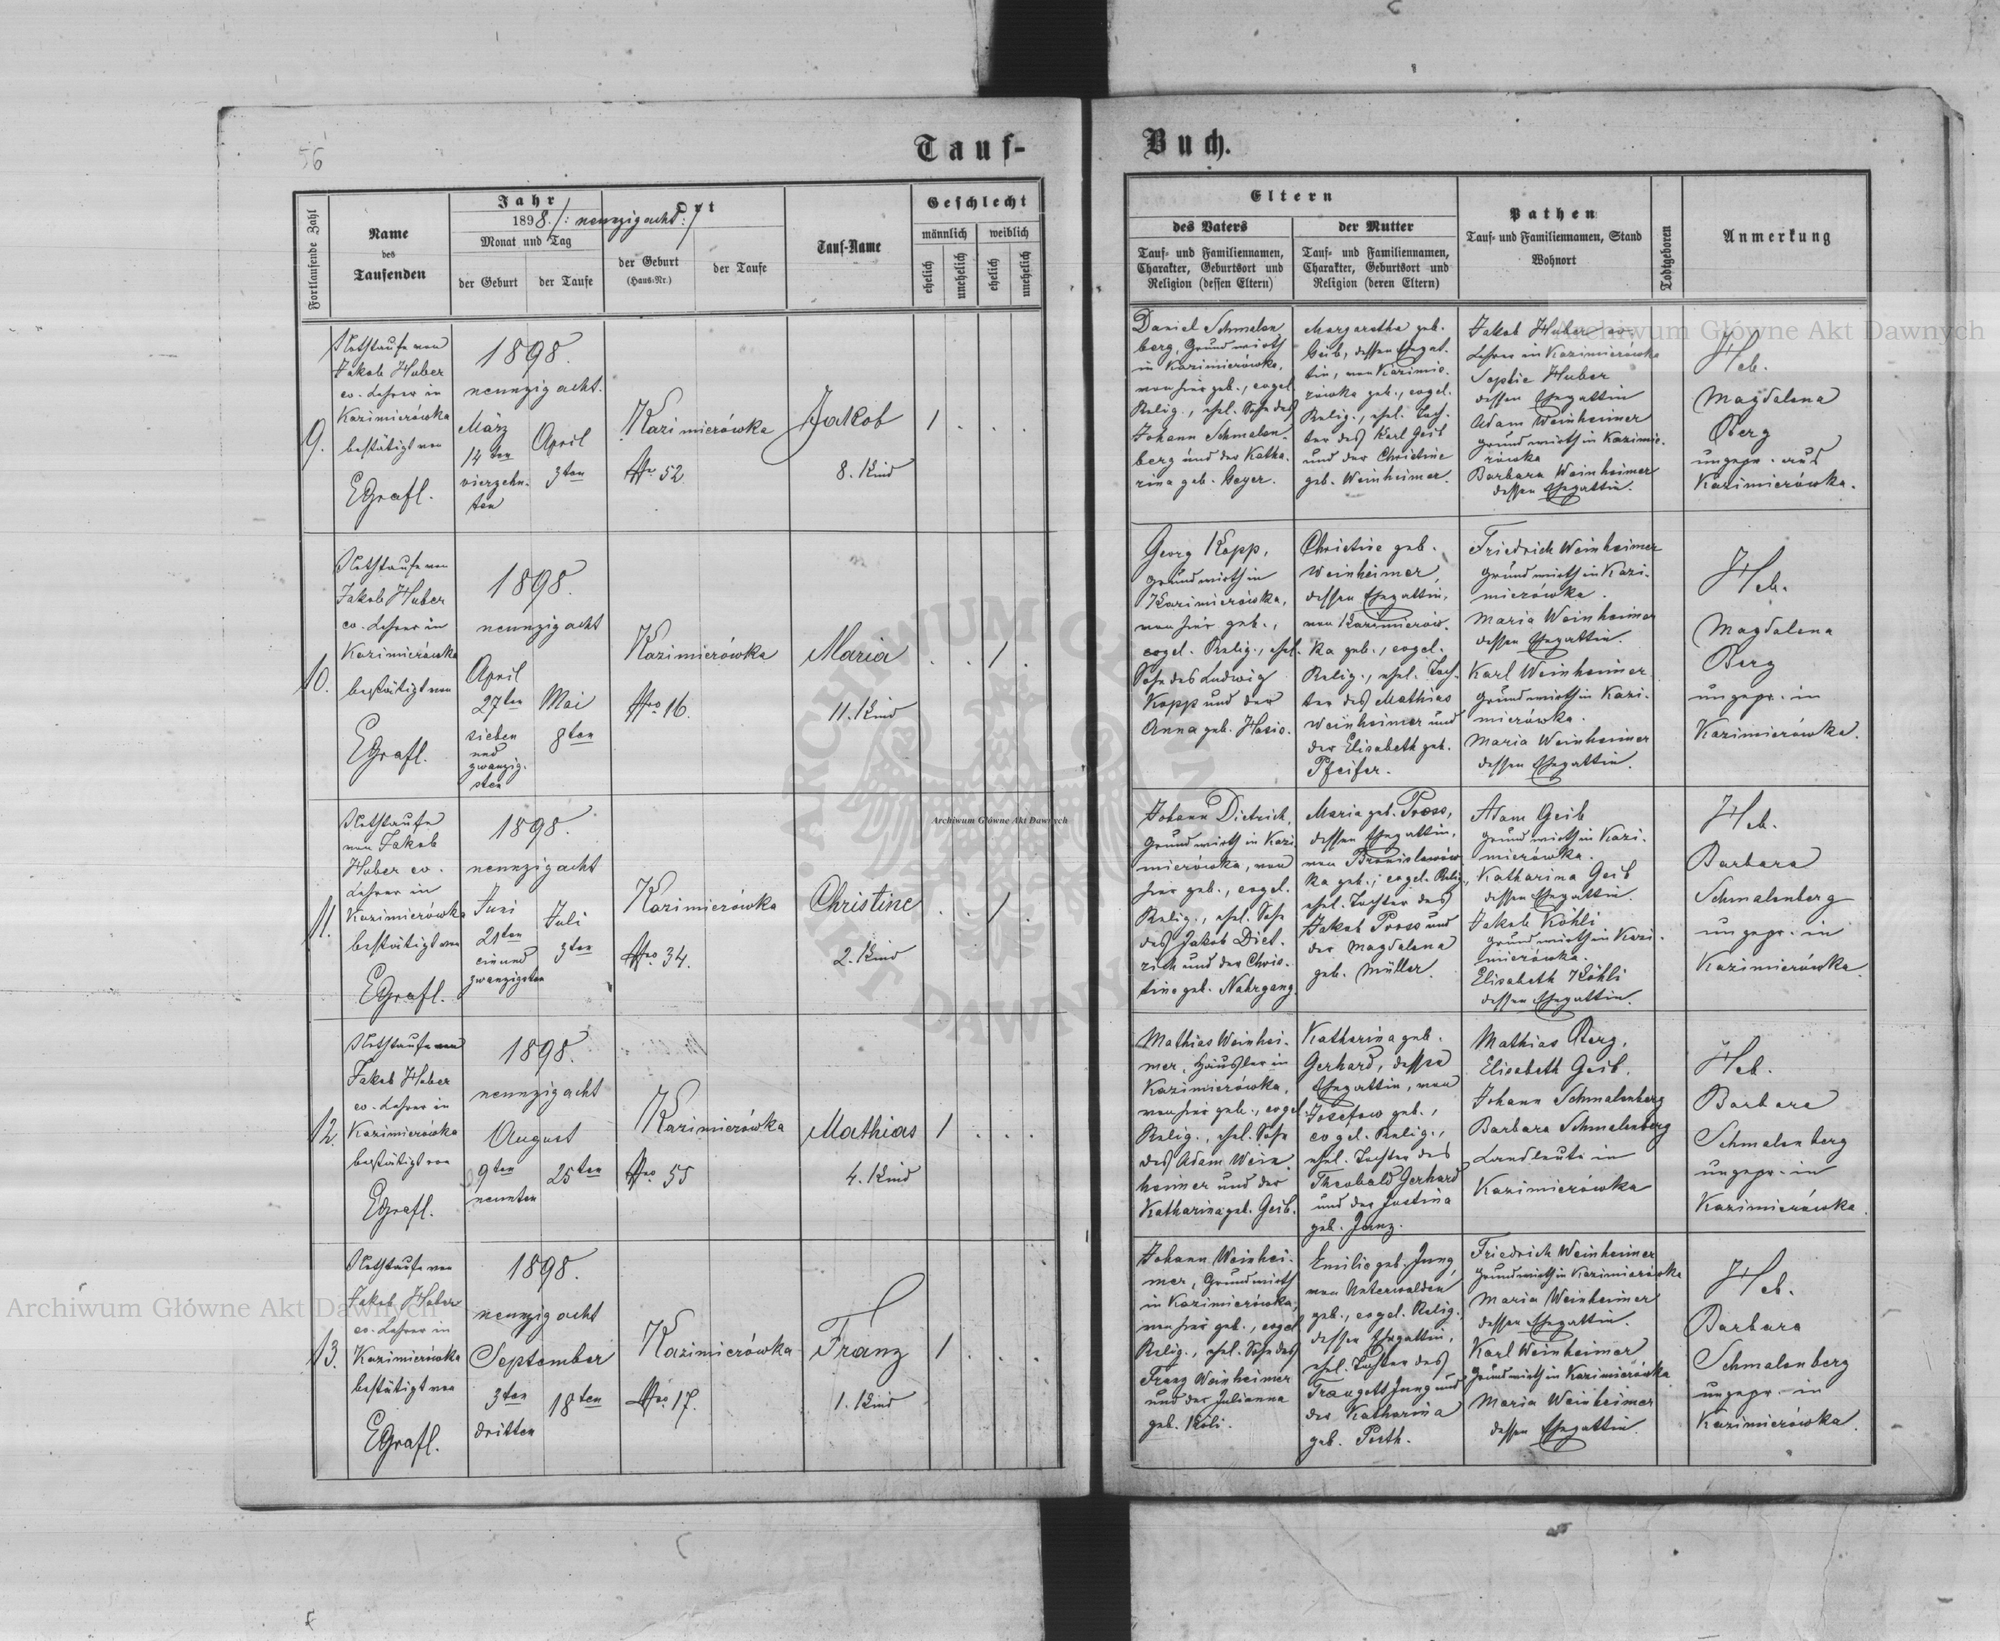 56
Tauf-
Buch.
Fortlaufende Zahl
Name
des
Taufenden
Jahr
1898 /: neunzigacht :/
Monat und Tag
der Geburt
der Taufe
Ort
der Geburt
(Haus-Nr.)
der Taufe
Tauf-Name
Geschlecht
männlich
weiblich
ehelich
unehelich
ehelich
unehelich
Eltern
des Vaters
Tauf- und Familiennamen,
Charakter, Geburtsort und
Religion (dessen Eltern)
der Mutter
Tauf- und Familiennamen,
Charakter, Geburtsort und
Religion (deren Eltern)
Pathen
Tauf- und Familiennamen, Stand
Wohnort
Todtgeboren
Anmerkung
9.
Nothtaufe von
Jakob Huber
ev. Lehrer in
Kazimierówka
bestätigt von
EGrafl.
1898.
neunzigacht.
März
14ten
vierzehn-
ten
April
3ten
Kazimierówka
Nro 52.
Jakob
8. Kind
1 . . .
Daniel Schmalen
berg, Grundwirth
in Kazimierówka,
von hier geb., evgel.
Relig., ehel. Sohn des
Johann Schmalen-
berg und der Katha-
rina geb. Geyer.
Margaretha geb.
Geib, dessen Ehegat-
tin, von Kazimie-
rówka geb., evgel.
Relig., ehel. Toch-
ter des Karl Geib
und der Christine
geb. Weinheimer.
Jakob Huber ev.
Lehrer in Kazimierówka
Sophie Huber
dessen Ehegattin
Adam Weinheimer
Grundwirth in Kazimie-
rówka
Barbara Weinheimer
dessen Ehegattin.
Heb.
Magdalena
Berg
ungepr. aus
Kazimierówka.
10.
Nothtaufe von
Jakob Huber
ev. Lehrer in
Kazimierówka
bestätigt von
EGrafl.
1898.
neunzigacht
April
27ten
sieben
und
zwanzig-
sten
Mai
8ten
Kazimierówka
Nro 16.
Maria
11. Kind
. . 1 .
Georg Kopp,
Grundwirth in
Kazimierówka,
von hier geb.,
evgel. Relig., ehel.
Sohn des Ludwig
Kopp und der
Anna geb. Hasio.
Christine geb.
Weinheimer,
dessen Ehegattin,
von Kazimierów-
ka geb., evgel.
Relig., ehel. Toch-
ter des Mathias
Weinheimer und
der Elisabeth geb.
Pfeifer.
Friedrich Weinheimer
Grundwirth in Kazi-
mierówka.
Maria Weinheimer
dessen Ehegattin.
Karl Weinheimer
Grundwirth in Kazi-
mierówka.
Maria Weinheimer
dessen Ehegattin.
Heb.
Magdalena
Berg
ungepr. in
Kazimierówka.
11.
Nothtaufe
von Jakob
Huber ev.
Lehrer in
Kazimierówka
bestätigt von
EGrafl.
1898.
neunzigacht
Juni
21ten
einund
zwanzigsten
Juli
3ten
Kazimierówka
Nro 34.
Christine
2. Kind
. . 1 .
Johann Dietrich,
Grundwirth in Kazi
mierówka, von
hier geb., evgel.
Relig., ehel. Sohn
des Jakob Diet-
rich und der Chris-
tine geb. Nahrgang.
Maria geb. Pross,
dessen Ehegattin,
von Bronislawów
ka geb., evgel. Relig.,
ehel. Tochter des
Jakob Pross und
der Magdalena
geb. Müller.
Adam Geib
Grundwirth in Kazi-
mierówka.
Katharina Geib
dessen Ehegattin.
Jakob Köhli
Grundwirth in Kazi-
mierówka.
Elisabeth Köhli
dessen Ehegattin.
Heb.
Barbara
Schmalenberg
ungepr. in
Kazimierówka.
12.
Nothtaufe von
Jakob Huber
ev. Lehrer in
Kazimierówka
bestätigt von
EGrafl.
1898.
neunzigacht
August
9ten
neunten
25ten
Kazimierówka
Nro 55
Mathias
4. Kind
1 . . .
Mathias Weinhei-
mer, Häusler in
Kazimierówka,
von hier geb., evgel.
Relig., ehel. Sohn
des Adam Wein-
heimer und der
Katharina geb. Geib.
Katharina geb.
Gerhard, dessen
Ehegattin, von
Josefow geb.,
evgel. Relig.,
ehel. Tochter des
Theobald Gerhard
und der Justina
geb. Janz.
Mathias Berg,
Elisabeth Geib.
Johann Schmalenberg
Barbara Schmalenberg
Landleute in
Kazimierówka
Heb.
Barbara
Schmalenberg
ungepr. in
Kazimierówka.
13.
Nothtaufe von
Jakob Huber
ev. Lehrer in
Kazimierówka
bestätigt von
EGrafl.
1898.
neunzigacht
September
3ten
dritten
18ten
Kazimierówka
Nro 17.
Franz
1. Kind
1 . . .
Johann Weinhei-
mer, Grundwirth
in Kazimierówka,
von hier geb., evgel.
Relig., ehel. Sohn des
Franz Weinheimer
und der Julianna
geb. Köli.
Emilie geb. Jung,
von Unterwalden
geb., evgel. Relig.
dessen Ehegattin,
ehel. Tochter des
Traugott Jung und
der Katharina
geb. Porth.
Friedrich Weinheimer
Grundwirth in Kazimierówka
Maria Weinheimer
dessen Ehegattin.
Karl Weinheimer
Grundwirth in Kazimierówka
Maria Weinheimer
dessen Ehegattin.
Heb.
Barbara
Schmalenberg
ungepr. in
Kazimierówka.
Archiwum Główne Akt Dawnych
Archiwum Główne Akt Dawnych
Archiwum Główne Akt Dawnych